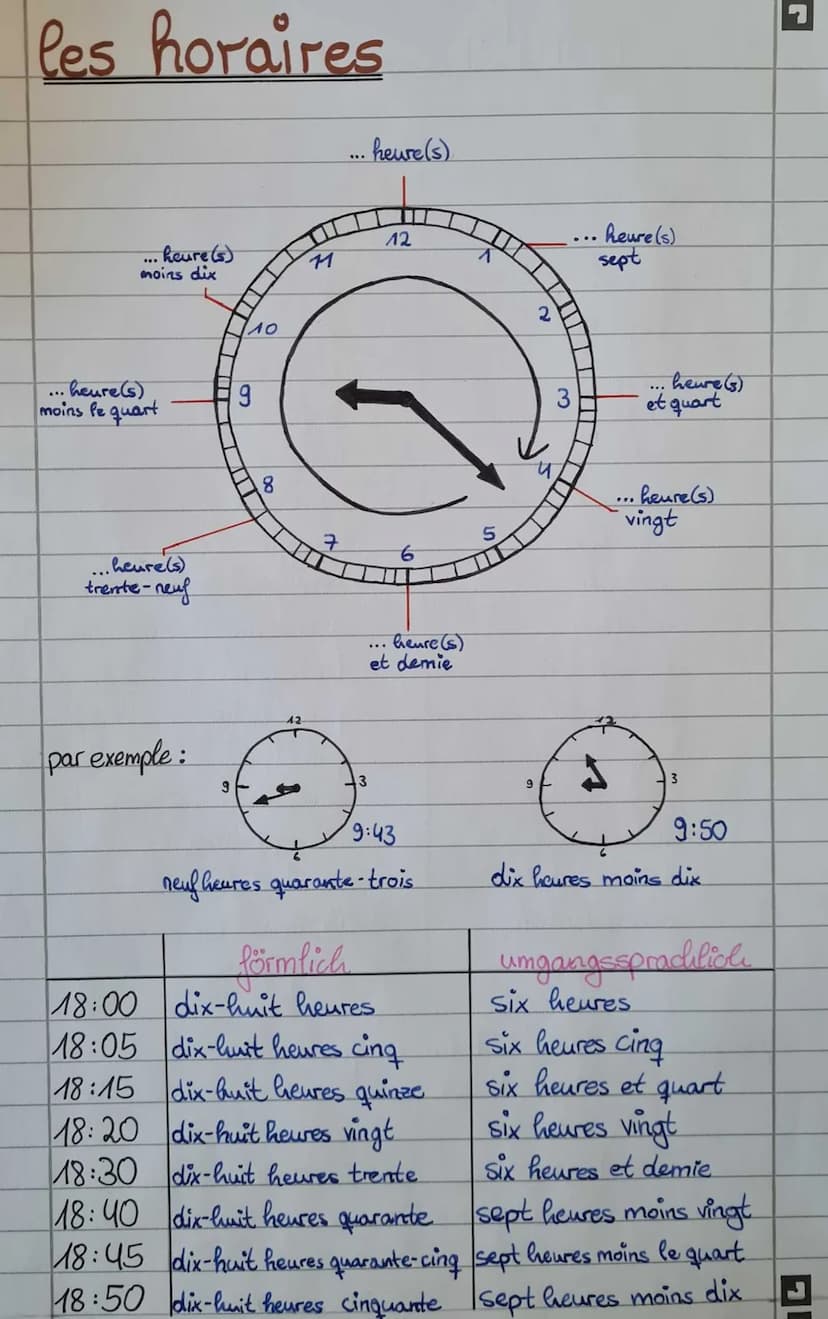 les horaires
... heure(s)
... heure(s)
sept
... heure(s)
moins dix
12
11
1
10
2
... heure(s)
moins le quart
9
3
... heure(s)
et quart
8
4
... heure(s)
vingt
7
6
5
... heure(s)
trente-neuf
... heure(s)
et demie
par exemple :
12
9
3
6
9:43
neuf heures quarante-trois
12
9
3
6
9:50
dix heures moins dix
förmlich umgangssprachlich
18:00 dix-huit heures six heures
18:05 dix-huit heures cinq six heures cinq
18:15 dix-huit heures quinze six heures et quart
18:20 dix-huit heures vingt six heures vingt
18:30 dix-huit heures trente six heures et demie
18:40 dix-huit heures quarante sept heures moins vingt
18:45 dix-huit heures quarante-cinq sept heures moins le quart
18:50 dix-huit heures cinquante sept heures moins dix